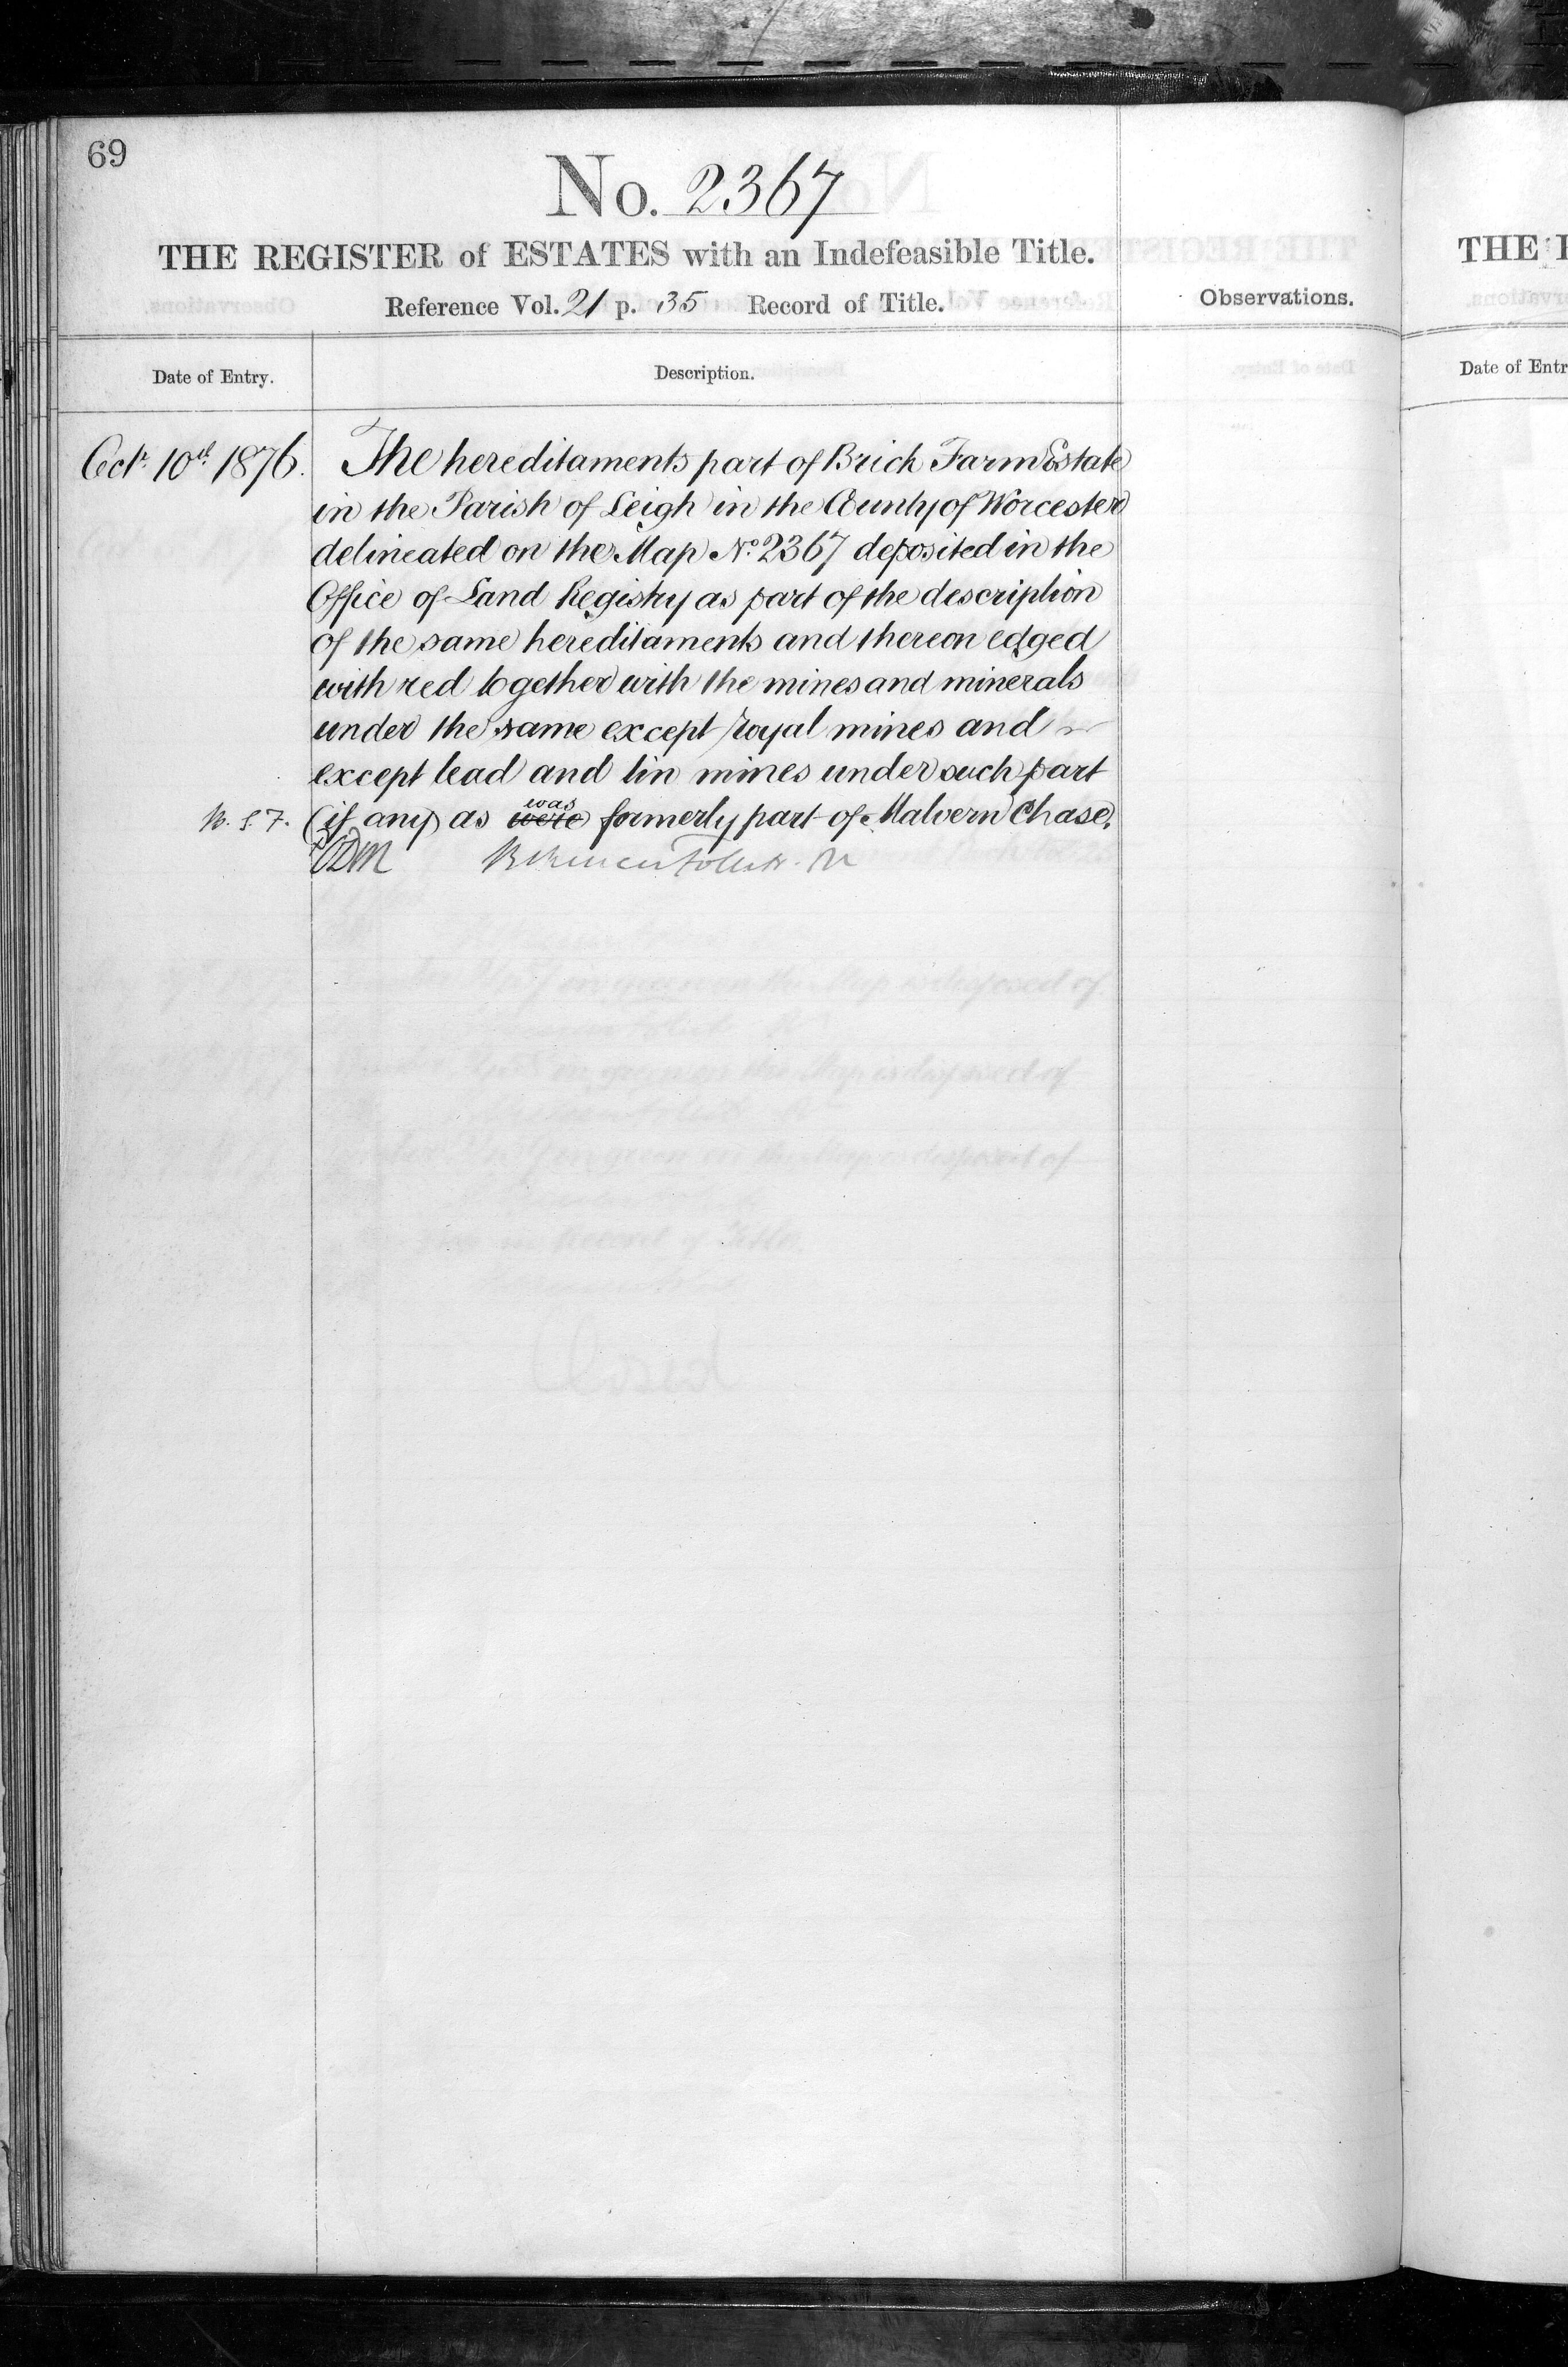 69
No. 2367
THE REGISTER of ESTATES with an Indefeasible Title.
Reference Vol. 21 p. 35 Record of Title.
Observations.
Date of Entry.
Description.
Octr. 10th 1876.
The hereditaments part of Brick Farm Estate
in the Parish of Leigh in the County of Worcester
delineated on the Map No. 2367 deposited in the
Office of Land Registry as part of the description
of the same hereditaments and thereon edged
with red together with the mines and minerals
under the same except royal mines and
except lead and tin mines under such part
(if any) as were was formerly part of Malvern Chase.
THE
Date of Entr